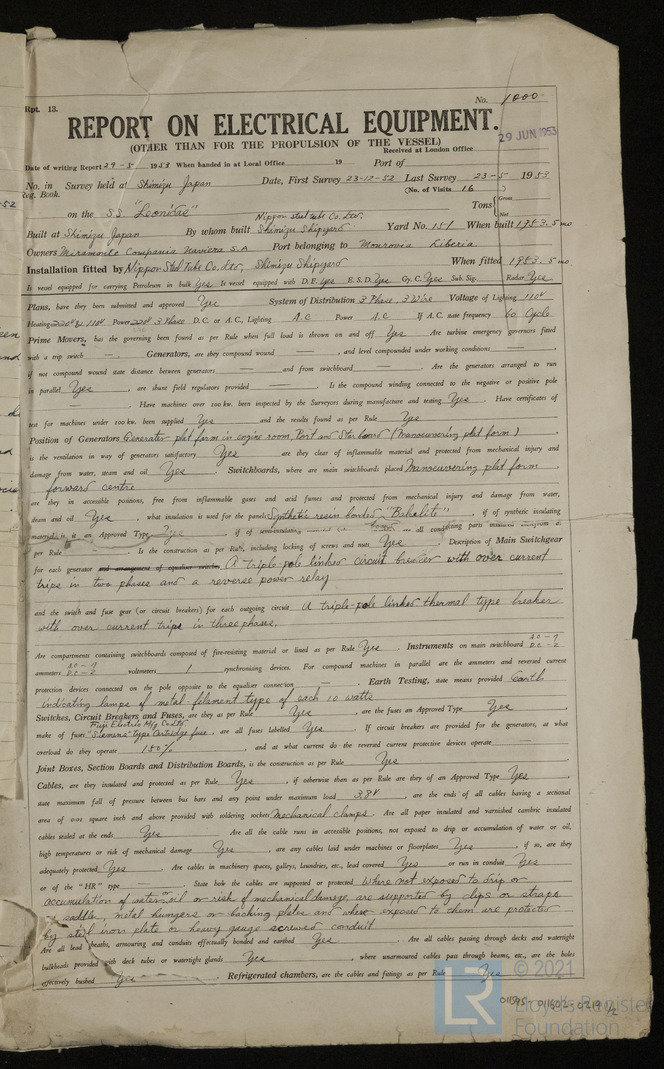 Rpt. 13.
No. 1000.
REPORT ON ELECTRICAL EQUIPMENT.
29 JUN 1953
(OTHER THAN FOR THE PROPULSION OF THE VESSEL)
Received at London Office
Date of writing Report 29-5-1953 When handed in at Local Office 19 Port of
No. in Reg. Book. Survey held at Shimizu Japan Date, First Survey 23-12-52 Last Survey 23-5 1953
(No. of Visits 16 )
on the SS "Leonidas" Tons { Gross Net
Built at Shimizu Japan By whom built Nippon Steel tube Co. Ltd. Shimizu Shipyard Yard No. 151 When built 1953. 5 mo
Owners Miramonte Compania Naviera S.A Port belonging to Monrovia Liberia
Installation fitted by Nippon Steel Tube Co. Ltd, Shimizu Shipyard When fitted 1953. 5 mo
Is vessel equipped for carrying Petroleum in bulk Yes Is vessel equipped with D.F. Yes E.S.D. Yes Gy.C. Yes Sub. Sig. Radar Yes
Plans, have they been submitted and approved Yes System of Distribution 3 Phase, 3 Wire Voltage of Lighting 110V
Heating 220V & 110V Power 220V 3 Phase D.C. or A.C., Lighting A.C Power A.C If A.C. state frequency 60 Cycle
Prime Movers, has the governing been found as per Rule when full load is thrown on and off Yes Are turbine emergency governors fitted
with a trip switch — Generators, are they compound wound — , and level compounded under working conditions — ,
if not compound wound state distance between generators — and from switchboard — . Are the generators arranged to run
in parallel Yes , are shunt field regulators provided — . Is the compound winding connected to the negative or positive pole
— . Have machines over 100 kw. been inspected by the Surveyors during manufacture and testing Yes . Have certificates of
test for machines under 100 kw. been supplied Yes and the results found as per Rule Yes
Position of Generators Generator platform in engine room, Port and Starboard (Manoeuvering platform)
is the ventilation in way of generators satisfactory Yes are they clear of inflammable material and protected from mechanical injury and
damage from water, steam and oil Yes . Switchboards, where are main switchboards placed Manoeuvering platform
forward centre
are they in accessible positions, free from inflammable gases and acid fumes and protected from mechanical injury and damage from water,
steam and oil Yes , what insulation is used for the panels Synthetic resin bonded, "Bakelite" , if of synthetic insulating
material is it an Approved Type Yes , if of semi-insulating
per Rule Is the construction as per Rule, including locking of screws and nuts Yes . Description of Main Switchgear
for each generator and arrangement of equaliser switches A triple pole linked circuit breaker with over current
trips in two phases and a reverse power relay
and the switch and fuse gear (or circuit breakers) for each outgoing circuit A triple-pole linked thermal type breaker
with over current trips in three phases.
Are compartments containing switchboards composed of fire-resisting material or lined as per Rule Yes . Instruments on main switchboard A.C - 7 D.C - 2
ammeters A.C - 7 D.C - 2 voltmeters 1 synchronising devices. For compound machines in parallel are the ammeters and reversed current
protection devices connected on the pole opposite to the equaliser connection — . Earth Testing, state means provided Earth
indicating lamps of metal filament type of each 10 watts
Switches, Circuit Breakers and Fuses, are they as per Rule Yes , are the fuses an Approved Type Yes ,
make of fuses Fuji Electric Mfg Co Ltd. "Siemens" type Cartridge fuse, are all fuses labelled Yes If circuit breakers are provided for the generators, at what
overload do they operate 150% , and at what current do the reversed current protective devices operate
Joint Boxes, Section Boards and Distribution Boards, is the construction as per Rule Yes
Cables, are they insulated and protected as per Rule Yes , if otherwise than as per Rule are they of an Approved Type Yes ,
state maximum fall of pressure between bus bars and any point under maximum load 3.8V , are the ends of all cables having a sectional
area of 0.01 square inch and above provided with soldering sockets Mechanical clamps. Are all paper insulated and varnished cambric insulated
cables sealed at the ends Yes . Are all the cable runs in accessible positions, not exposed to drip or accumulation of water or oil,
high temperatures or risk of mechanical damage Yes , are any cables laid under machines or floorplates Yes , if so, are they
adequately protected Yes . Are cables in machinery spaces, galleys, laundries, etc., lead covered Yes or run in conduit Yes
or of the "HR" type — . State how the cables are supported or protected Where not exposed to drip or
accumulation of water or oil or risk of mechanical damage, are supported by clips or straps
saddles, metal hangers or backing plates and where exposed to them are protected
by steel iron plate or heavy gauge screwed conduit
Are all lead sheaths, armouring and conduits effectually bonded and earthed Yes . Are all cables passing through decks and watertight
bulkheads provided with deck tubes or watertight glands Yes , where unarmoured cables pass through beams, etc., are the holes
effectively bushed Yes . Refrigerated chambers, are the cables and fittings as per Rule Yes
LR © 2021
Lloyd's Register
Foundation
011595-011602-0219 1/2